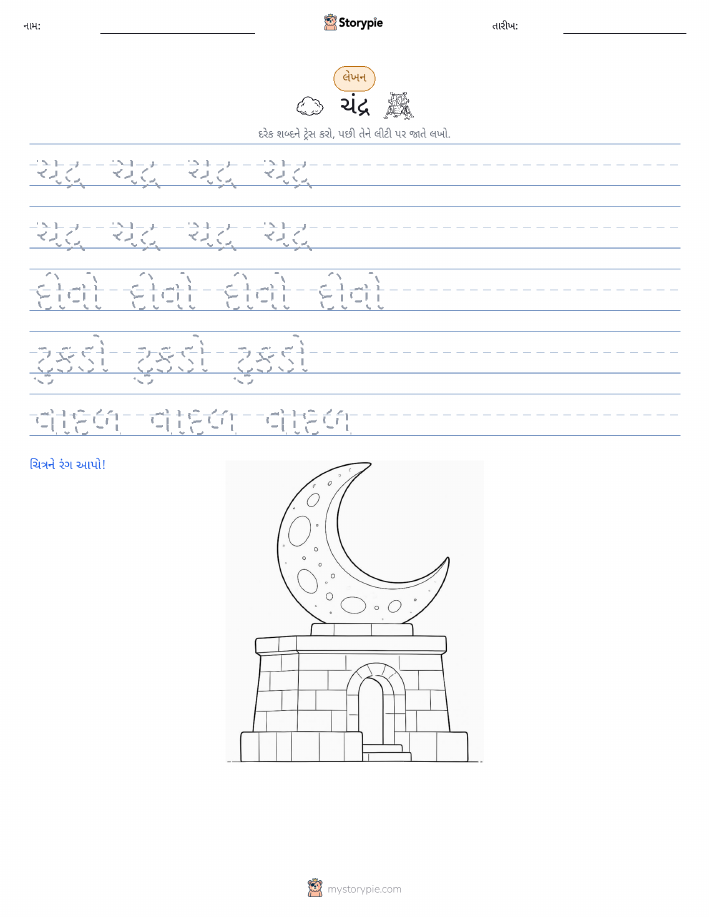 નામ:
Storypie
તારીખ:
લેખન
ચંદ્ર
દરેક શબ્દને ટ્રેસ કરો, પછી તેને લીટી પર જાતે લખો.
ચંદ્ર ચંદ્ર ચંદ્ર ચંદ્ર
ચંદ્ર ચંદ્ર ચંદ્ર ચંદ્ર
દીવો દીવો દીવો દીવો
ટુકડો ટુકડો ટુકડો
વાદળ વાદળ વાદળ
ચિત્રને રંગ આપો!
mystorypie.com